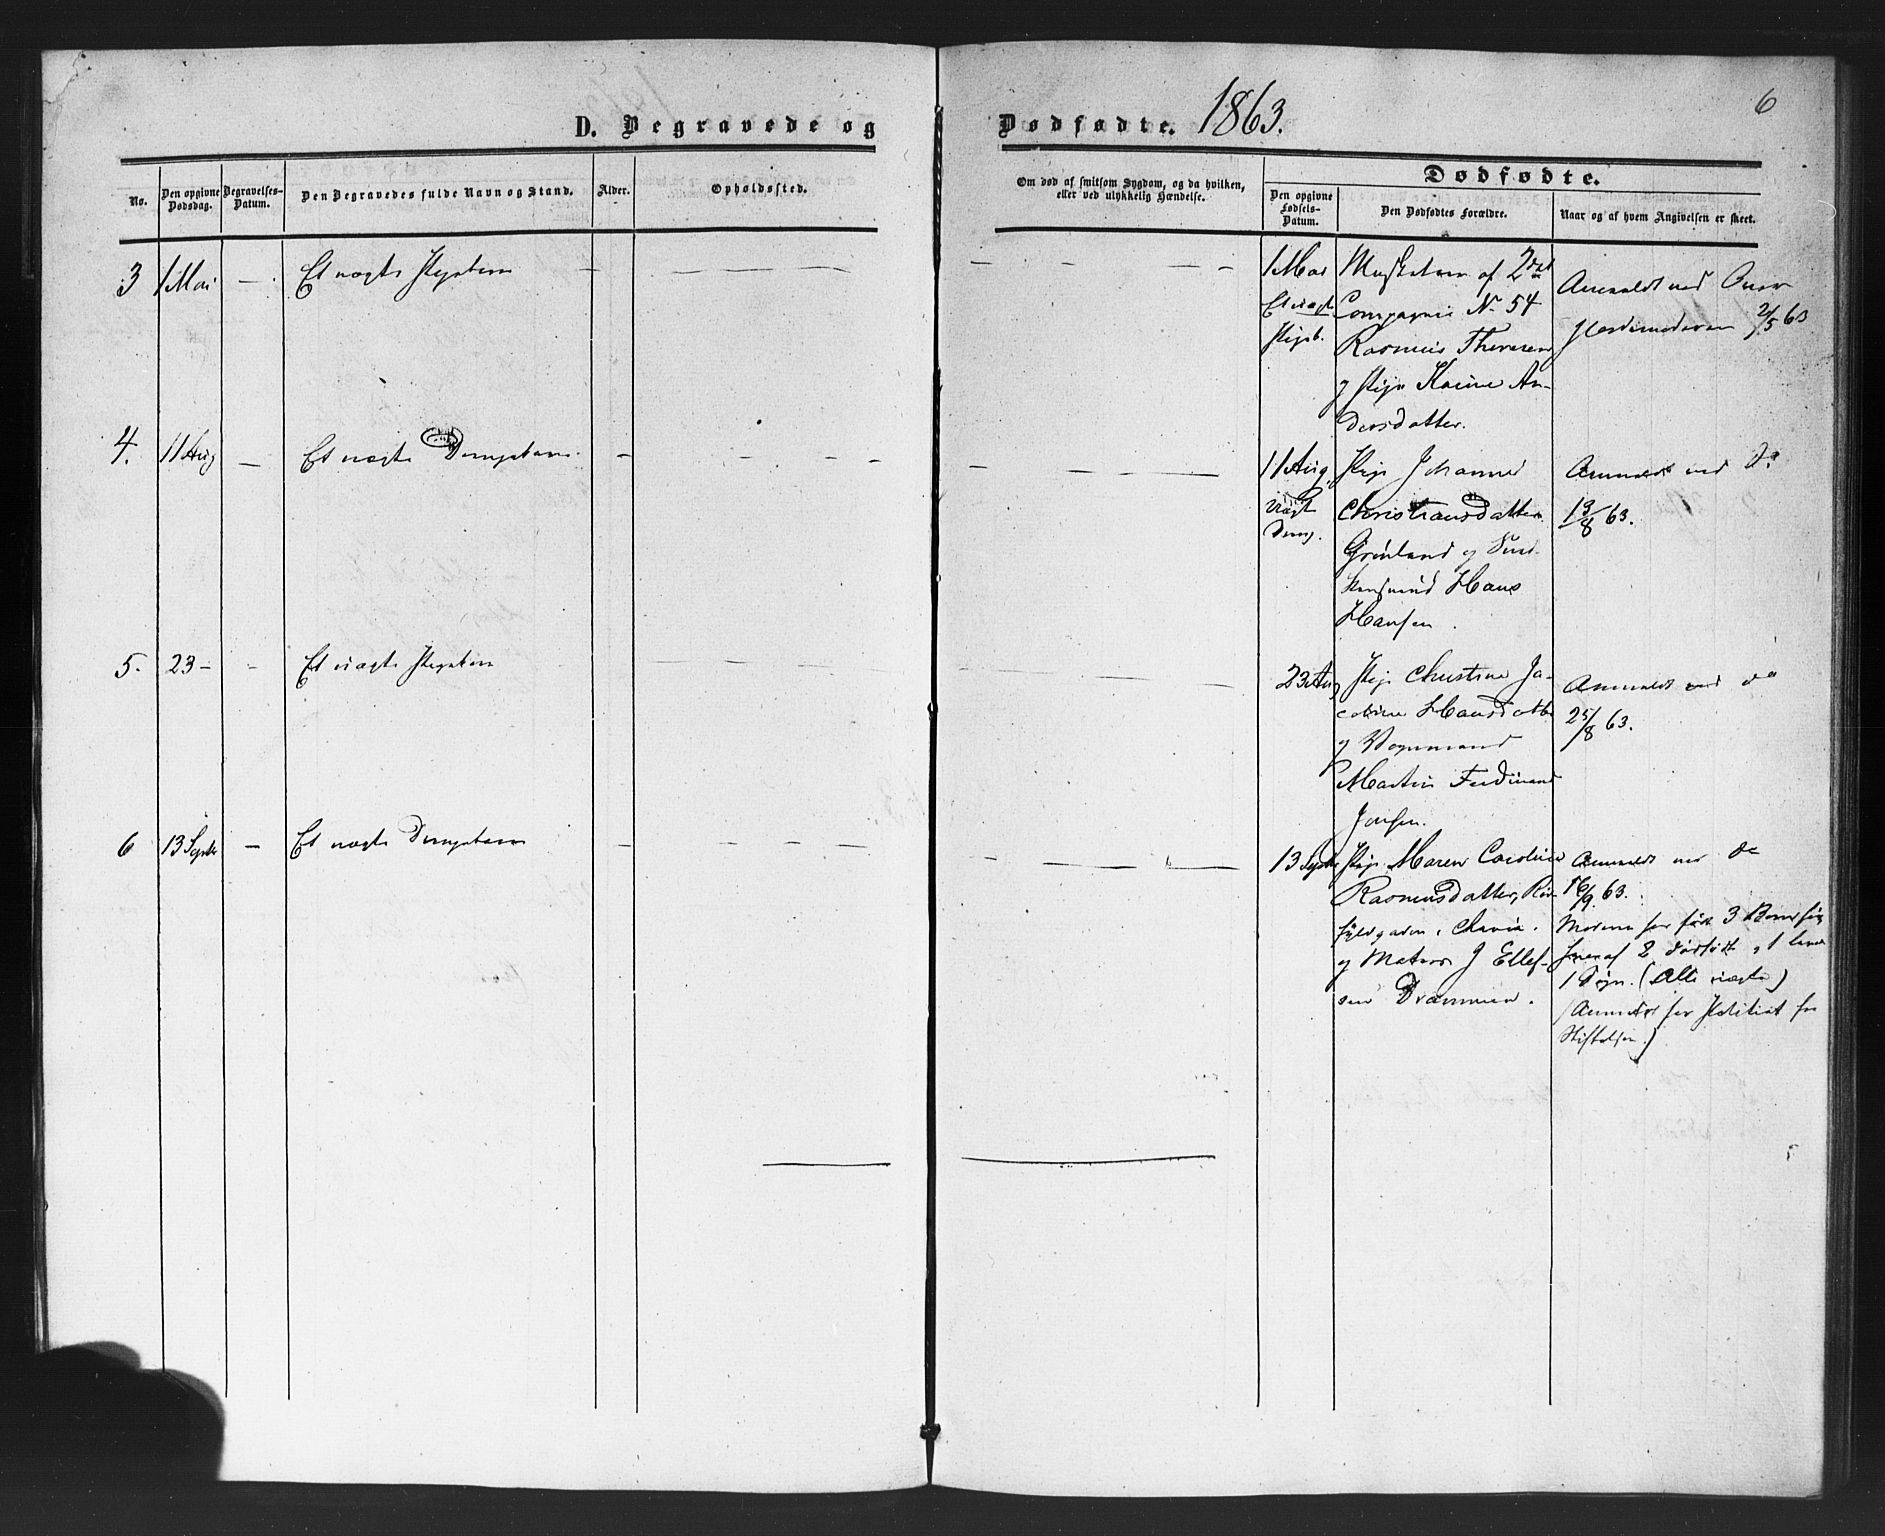 D. Begravede og
Dødfødte. 1863.
6
No.
Den opgivne Dødsdag.
Begravelses-Datum.
Den Begravedes fulde Navn og Stand.
Alder.
Opholdssted.
Om død af smitsom Sygdom, og da hvilken,
eller ved ulykkelig Hændelse.
Dødfødte.
Den opgivne Fødsels-Datum.
Den Dødfødtes Forældre.
Naar og af hvem Angivelsen er skeet.
3 1 Mai — Et uægte Pigebarn —
1 Mai
Et uægt
Pigeb.
Musketeer af 2det
Compagnie No 54
Rasmus
og Pige Karine An-
dersdatter.
Anmeldt ved
Jordemoderen 2/5 63
4. 11 Aug — Et uægte Drengebarn. —
11 Aug.
uægt
Dreng.
Pige Johanne
Christiansdatter
Grønland og
Hans
Hansen.
Anmeldt ved Do
13/8 63.
5. 23 — - Et uægte Pigebarn
23 Aug
Pige Christine Ja-
cobine Hansdatter
og Vognmand
Martin Ferdinand
Jonsen.
Anmeldt ved do
25/8 63.
6 13 Septbr — Et uægte Drengebarn —
13 Septbr
Pige Maren Caroline
Rasmusdatter,
og Matros J Ellef-
sen Drammen.
Anmeldt ved do
16/9 63.
Moderen har født 3 Børn
2 dødfødte, 1 levet
1 Døgn. (Alle uægte)
(Anmeldt for Politiet fra
Stiftelsen.)